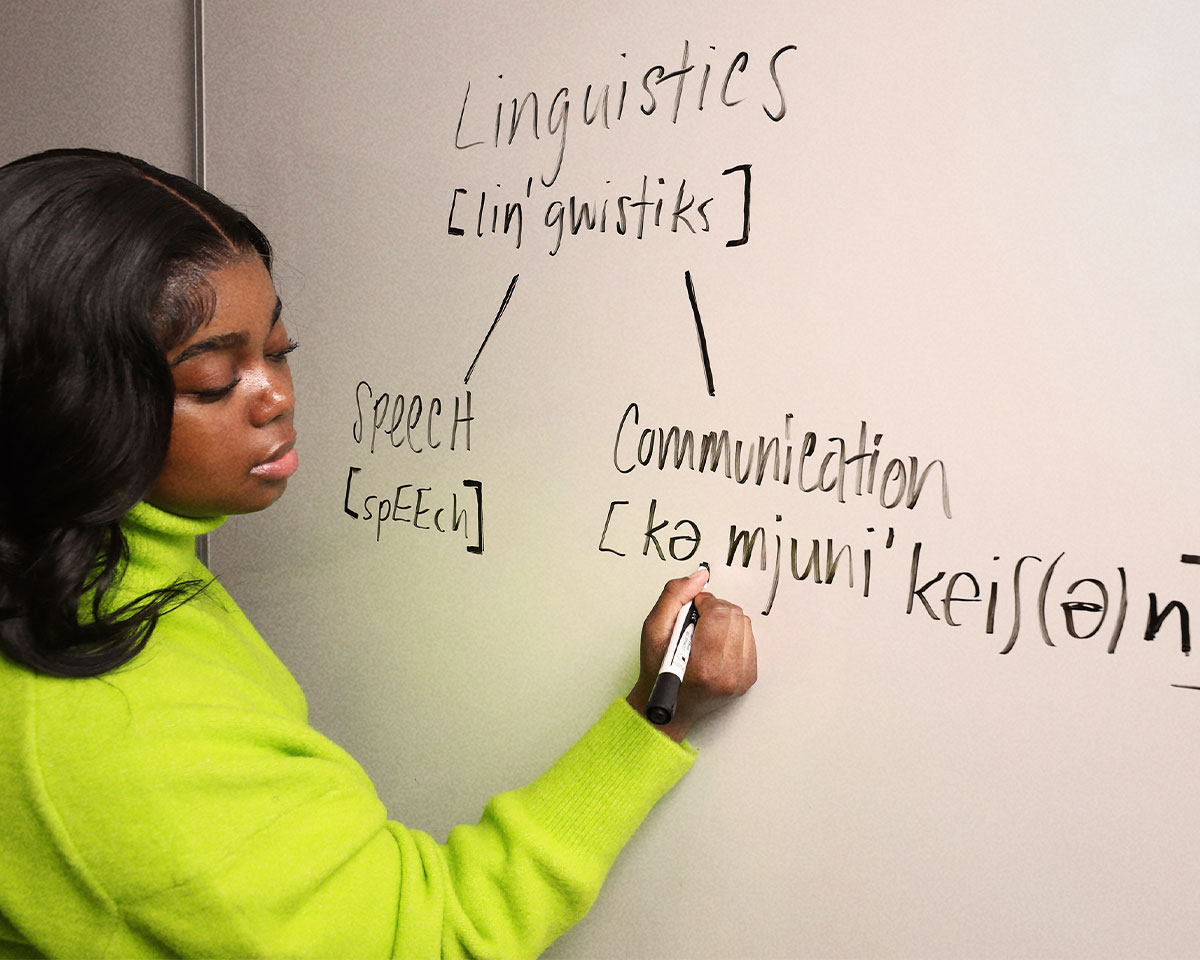 Linguistics
[lin'gwistiks]
SPEECH
[spEEch]
Communication
[kə mjuni'keiʃ(ə)n]